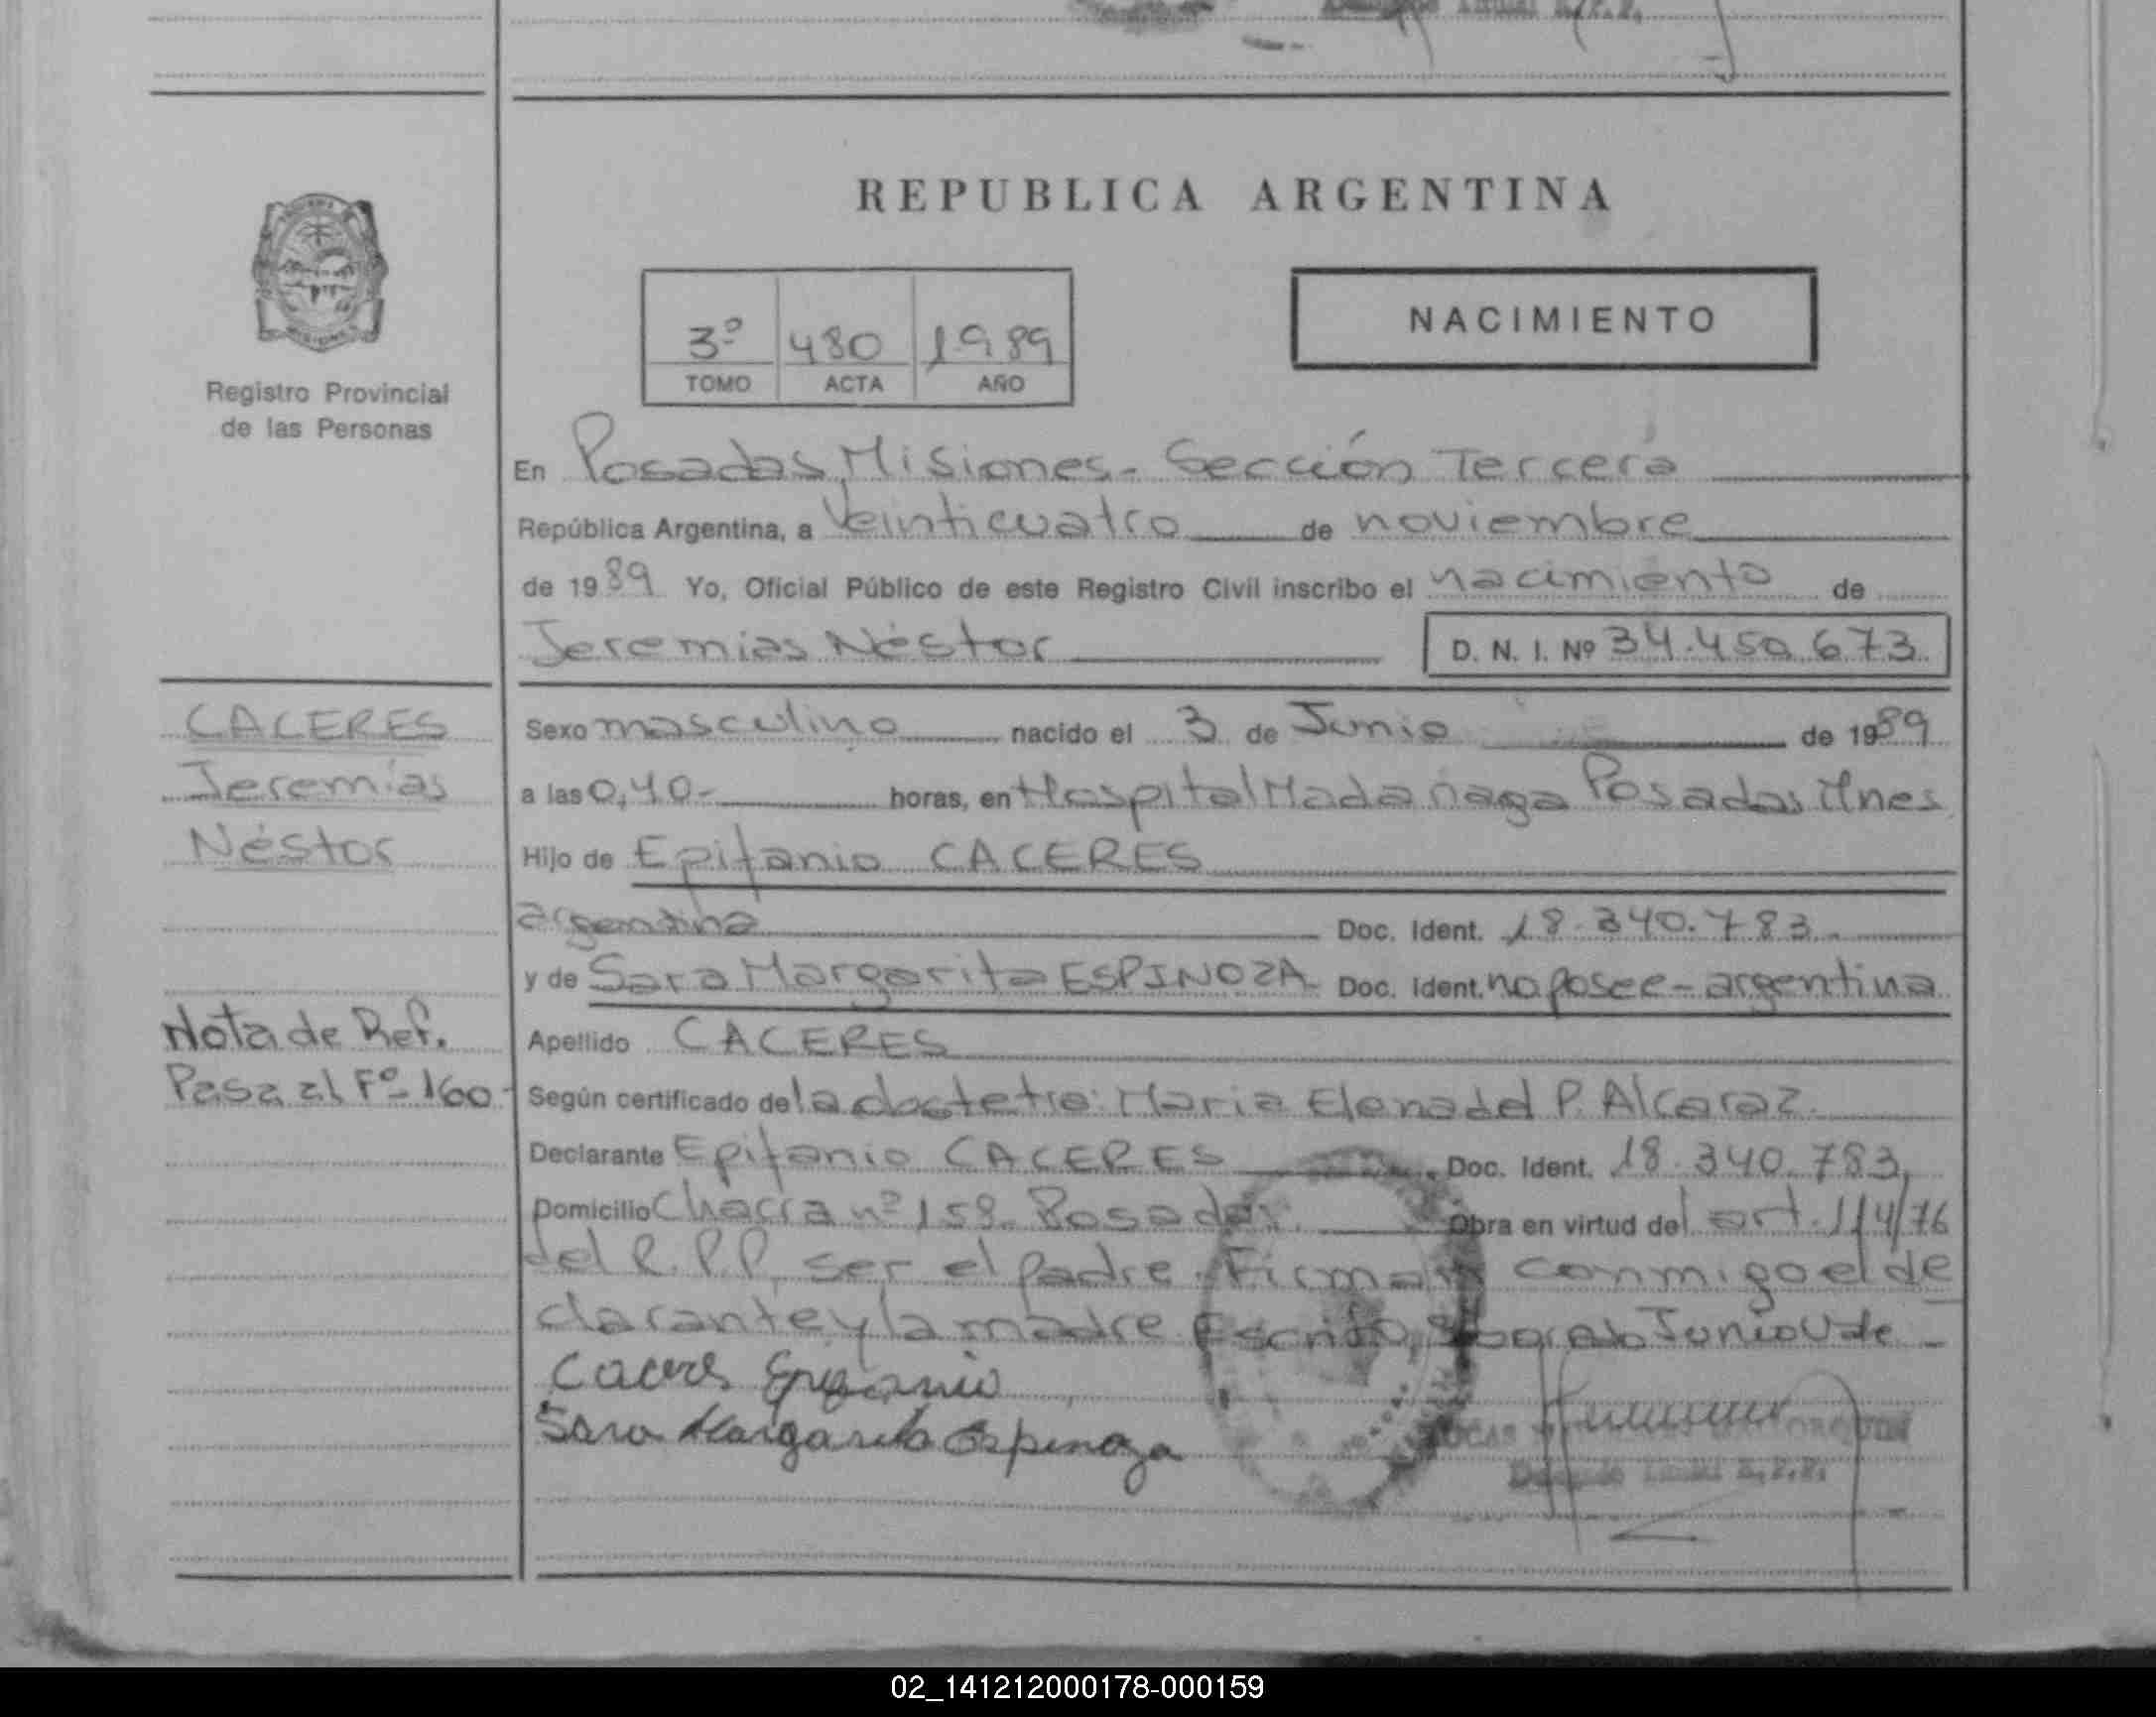 REPUBLICA ARGENTINA
3º 480 1989
TOMO ACTA AÑO
NACIMIENTO
Registro Provincial
de las Personas
En Posadas, Misiones- Sección Tercera
República Argentina, a Veinticuatro de noviembre
de 1989 Yo, Oficial Público de este Registro Civil inscribo el nacimiento de
Jeremias Néstor D. N. I. Nº 34.450.673
CACERES
Jeremías
Néstor
Sexo masculino nacido el 3 de Junio de 1989
a las 0,40- horas, en Hospital Madariaga Posadas Mnes
Hijo de Epifanio CACERES
argentina Doc. Ident. 18.340.783.
y de Sara Margarita ESPINOZA Doc. Ident. no posee - argentina
Nota de Ref.
Pasa al Fº- 160-
Apellido CACERES
Según certificado de la obstetra: Maria Elena del P. Alcaraz
Declarante Epifanio CACERES Doc. Ident. 18.340.783,
Domicilio Chacra nº 159. Posadas. Obra en virtud del art. 114/76
del R.P.P, ser el padre. Firman conmigo el de
clarante y la madre Escrito, Junio Vale -
Caceres Epifanio
Sara Margarita Espinoza
Delegado R.P.P.
02_141212000178-000159